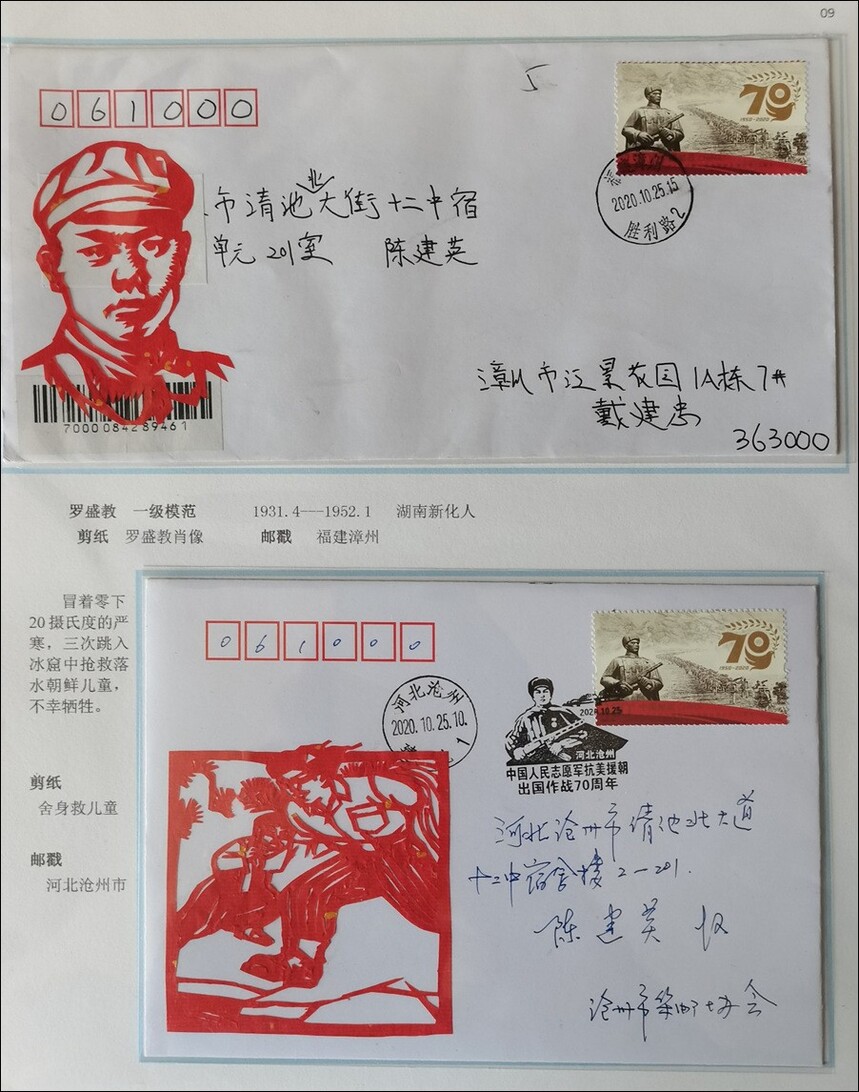 09
061000
5
70
1950-2020
2020.10.25.15
胜利路2
北
市清池大街十二中宿
单元201室 陈建英
漳州市江景花园1A栋7#
戴建忠
363000
7000084289461
罗盛教 一级模范 1931.4---1952.1 湖南新化人
剪纸 罗盛教肖像 邮戳 福建漳州
冒着零下
20摄氏度的严
寒，三次跳入
冰窟中抢救落
水朝鲜儿童，
不幸牺牲。
剪纸
舍身救儿童
邮戳
河北沧州市
061000
70
1950-2020
河北沧州
2020.10.25.10.
1
2020.10.25
河北沧州
中国人民志愿军抗美援朝
出国作战70周年
河北沧州市清池北大道
十二中宿舍楼2-201.
陈建英 收
沧州市集邮协会